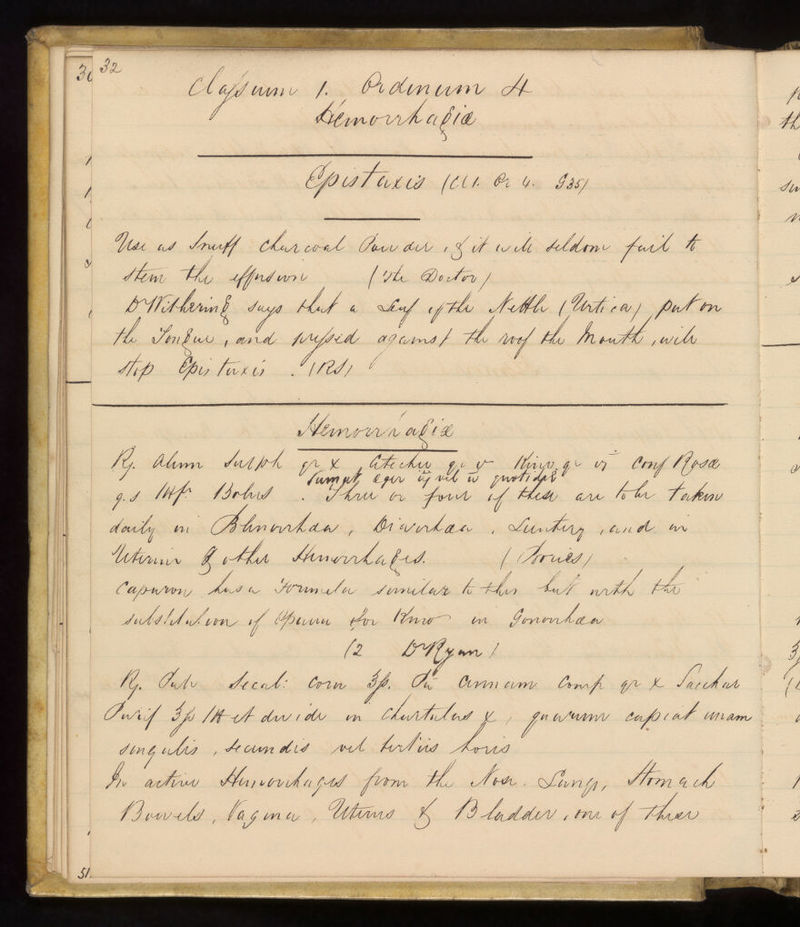 32
Classum 1. Ordinum 4
Hemorrhagiæ
Epistaxis (Cl 1. Or 4. G35)
Use as Snuff charcoal Powder, & it will seldom fail to
stem the effusion (The Doctor)
Dr Withering says that a Leaf of the Nettle (Urtica) put on
the Tongue, and pressed against the roof the Mouth, will
stop Epistaxis. (RS)
Hemorrhagiæ
Rj. Alum Sulph gr x, Catechu gr v Kino gr vi Conf Rosæ
Sumat æger iij vel iv quotidie
q.s Bolus. Three or four of these are to be taken
daily in Blenorrhœa, Diarrhœa, Lientery, and in
Uterine & other Hemorrhages.
Capuron has a Formula similar to this but with the
substitution of Opium for Kino in Gonorrhœa
(2 Dr Ryan)
Rj. Pulv Secal: corn ʒß. Pu Cinnam Comp gr x Sacchar
Purif ʒß et divide in Chartulas X, quarum capiat unam
singulis, secundis vel tertiis horis
In active Hemorrhages from the Nose. Lungs, Stomach
Bowels, Vagina, Uterus & Bladder, one of these
51